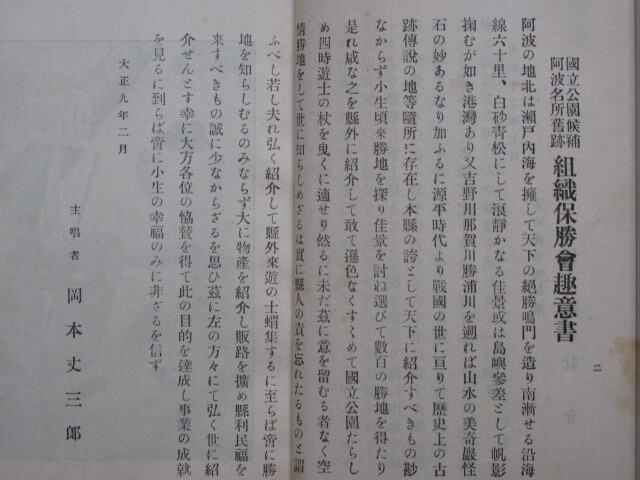 二
國立公園候補
阿波名所舊跡
組織保勝會趣意書
阿波の地北は瀨戶內海を擁して天下の絕勝鳴門を造り南漸せる沿海
線六十里、白砂靑松にして浪靜かなる佳景或は島嶼參差として帆影
掬むが如き港灣あり又吉野川那賀川勝浦川を遡れば山水の美奇巖怪
石の妙あるなり加ふるに源平時代より戰國の世に亘りて歷史上の古
跡傳說の地等隨所に存在し本縣の誇として天下に紹介すべきもの尠
なからず小生頃來勝地を探り佳景を討ね選びて數百の勝地を得たり
是れ咸な之を縣外に紹介して敢て遜色なくすくめて國立公園たらし
め四時遊士の杖を曳くに適せり然るに未だ茲に意を留むる者なく空
情勝地をして世に知らしめざるは實に縣人の責を忘れたるものと謂
ふべし若し夫れ弘く紹介して縣外來遊の士蝟集するに至らば啻に勝
地を知らしむるのみならず大に物產を紹介し販路を擴め縣利民福を
來すべきもの誠に少なからざるを思ひ茲に左の方々にて弘く世に紹
介せんとす幸に大方各位の協賛を得て此の目的を達成し事業の成就
を見るに到らば啻に小生の幸福のみに非ざるを信ず
大正九年二月
主唱者 岡本丈三郎